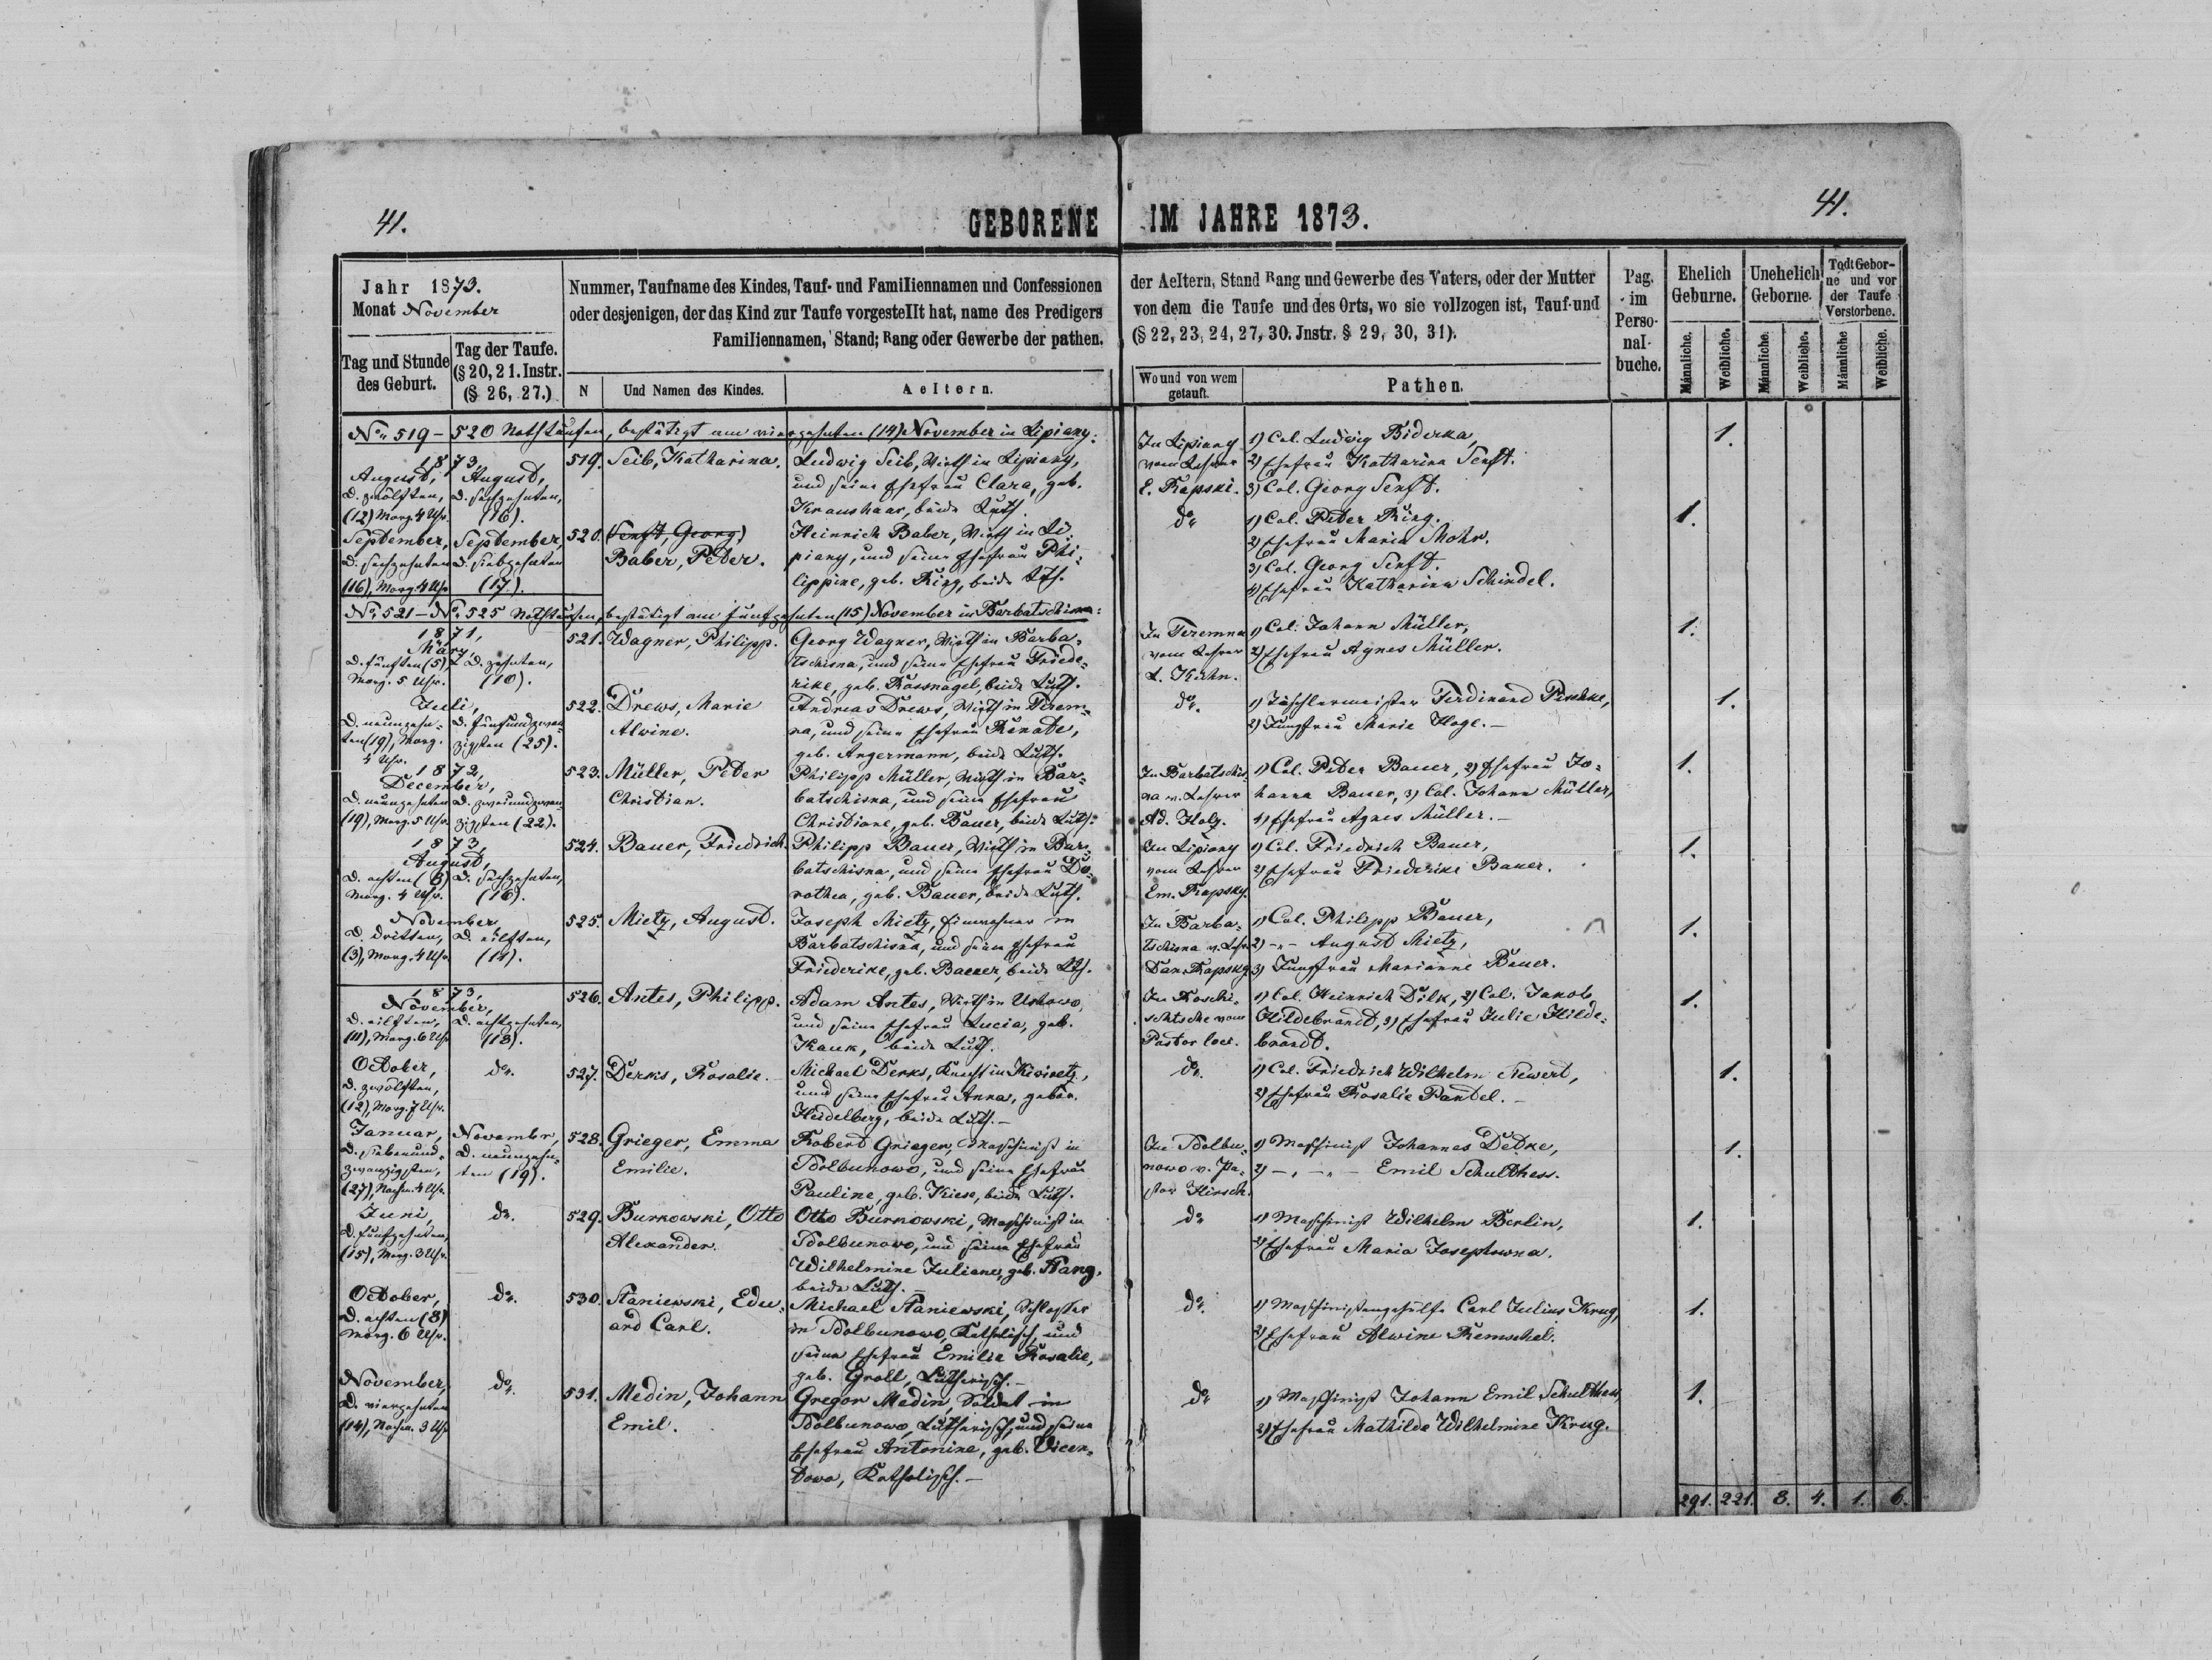 41.
GEBORENE IM JAHRE 1873.
41.
Jahr 1873.
Monat November
Tag und Stunde
des Geburt.
Tag der Taufe.
(§ 20, 21. Instr.
(§ 26, 27.)
Nummer, Taufname des Kindes, Tauf- und Familiennamen und Confessionen
oder desjenigen, der das Kind zur Taufe vorgestellt hat, name des Predigers
Familiennamen, Stand; Rang oder Gewerbe der pathen.
N
Und Namen des Kindes.
Aeltern.
der Aeltern, Stand Rang und Gewerbe des Vaters, oder der Mutter
von dem die Taufe und des Orts, wo sie vollzogen ist, Tauf-und
(§ 22, 23, 24, 27, 30. Jnstr. § 29, 30, 31).
Wo und von wem
getauft.
Pathen.
Pag.
im
Perso-
nal-
buche.
Ehelich
Geburne.
Unehelich
Geborne.
Todt Gebor-
ne und vor
der Taufe
Verstorbene.
Männliche.
Weibliche.
Männliche.
Weibliche.
Männliche
Weibliche.
No 519 – 520 Nothtaufen, bestätigt am vierzehnten (14) November in Lipiany:
1873,
August,
d. zwölften,
(12) Morg. 4 Uhr.
August,
d. sechzehnten,
(16).
519.
Seib, Katharina.
Ludwig Seib, Wirth in Lipiany,
und seine Ehefrau Clara, geb.
Kraushaar, beide Luth.
In Lipiany
vom Lehrer
E. Rapski.
1) Col. Ludwig Biderka,
2) Ehefrau Katharina Senft.
3) Col. Georg Senft.
1.
September,
d. sechzehnten
(16), Morg. 4 Uhr
September,
d. siebzehnten
(17).
520.
(Senft, Georg)
Baber, Peter.
Heinrich Baber, Wirth in Li-
piany, und seine Ehefrau Phi-
lippine, geb. Ring, beide Lth.
do
1) Col. Peter Ring.
2) Ehefrau Maria Mohr.
3) Col. Georg Senft.
4) Ehefrau Katharina Schindel.
1.
No 521 – No 525 Nothtaufen, bestätigt am fünfzehnten (15) November in Barbatschisna:
1871,
März,
d. fünften (5),
Morg. 5 Uhr.
d. zehnten,
(10).
521.
Wagner, Philipp.
Georg Wagner, Wirth in Barba-
tschisna, und seine Ehefrau Friede-
rike, geb. Rossnagel, beide Luth.
In Teremna
vom Lehrer
L. Kühn.
1) Col. Johann Müller,
2) Ehefrau Agnes Müller.
1.
Juli,
d. neunzehn-
ten (19), Morg.
4 Uhr.
d. fünfundzwan-
zigsten (25).
522.
Drews, Marie
Alwine.
Andreas Drews, Wirth in Terem-
na, und seine Ehefrau Renate,
geb. Angermann, beide Luth.
do.
1) Tischlermeister Ferdinand Peschke,
2) Jungfrau Marie Hoge. –
1.
1872,
December,
d. neunzehnten
(19), Morg. 5 Uhr.
d. zweiundzwan-
zigsten (22).
523.
Müller, Peter
Christian.
Philipp Müller, Wirth in Bar-
batschisna, und seine Ehefrau
Christiane, geb. Bauer, beide Luth.
In Barbatschis-
na v. Lehrer
Ad. Holz.
1) Col. Peter Bauer, 2) Ehefrau Jo-
hanna Bauer, 3) Col. Johann Müller,
4) Ehefrau Agnes Müller. –
1.
1873,
August,
d. achten (8)
Morg. 4 Uhr.
d. sechzehnten,
(16).
524.
Bauer, Friedrich.
Philipp Bauer, Wirth in Bar-
batschisna, und seine Ehefrau Do-
rothea, geb. Bauer, beide Luth.
In Lipiany
vom Lehrer
Em. Rapsky.
1) Col. Friedrich Bauer,
2) Ehefrau Friederike Bauer.
1.
November
d. dritten,
(3), Morg. 4 Uhr
d. eilften,
(11).
525.
Mietz, August.
Joseph Mietz, Einwohner in
Barbatschisna, und seine Ehefrau
Friederike, geb. Bauer, beide Lth.
In Barba-
tschisna v. Lehr.
Dan. Rapsky
1) Col. Philipp Bauer,
2) -„- August Mietz,
3) Jungfrau Marianne Bauer.
1.
1873,
November,
d. eilften,
(11), Morg. 6 Uhr
d. achtzehnten,
(18).
526.
Antes, Philipp.
Adam Antes, Wirth in Ustowo,
und seine Ehefrau Lucia, geb.
Kauk, beide Luth.
In Roschi-
schtsche vom
Pastor loci.
1) Col. Heinrich Dilk, 2) Col. Jakob
Hildebrandt, 3) Ehefrau Julie Hilde-
brandt.
1.
October,
d. zwölften,
(12), Morg. 7 Uhr.
do.
527.
Derks, Rosalie.
Michael Derks, Knecht in Kisiretz,
und seine Ehefrau Anna, gebor.
Heidelberg, beide Luth. –
do.
1) Col. Friedrich Wilhelm Newert,
2) Ehefrau Rosalie Pandel. –
1.
Januar,
d. siebenund-
zwanzigsten,
(27), Nachm. 4 Uhr.
Novembr,
d. neunzehn-
ten (19).
528.
Grieger, Emma
Emilie.
Robert Grieger, Maschinist in
Sdolbunowo, und seine Ehefrau
Pauline, geb. Kiese, beide Luth.
In Sdolbu-
nowo v. Pa-
stor Hirsch.
1) Maschinist Johannes Detke,
2) -„-„- Emil Schulthess.
1.
Juni,
d. fünfzehnten,
(15), Morg. 3 Uhr.
do.
529.
Burkowski, Otto
Alexander.
Otto Burkowski, Maschinist in
Sdolbunowo, und seine Ehefrau
Wilhelmine Juliane, geb. Nang,
beide Luth. –
do
1) Maschinist Wilhelm Berlin,
2) Ehefrau Maria Josephowna.
1.
October,
d. achten (8)
Morg. 6 Uhr.
do.
530.
Staniewski, Edu-
ard Carl.
Michael Staniewski, Schlosser
in Sdolbunowo, Katholisch, und
seine Ehefrau Emilie Rosalie,
geb. Groll, Lutherisch. –
do.
1) Maschinistengehülfe Carl Julius Krug,
2) Ehefrau Alwine Remschel.
1.
November,
d. vierzehnten
(14), Nachm. 3 Uhr
do.
531.
Medin, Johann
Emil.
Gregor Medin, Soldat in
Sdolbunowo, Lutherisch, und seine
Ehefrau Antonine, geb. Vicen-
towa, Katholisch. –
do
1) Maschinist Johann Emil Schulthess,
2) Ehefrau Mathilde Wilhelmine Krug.
1.
291. 221. 8. 4. 1. 6.